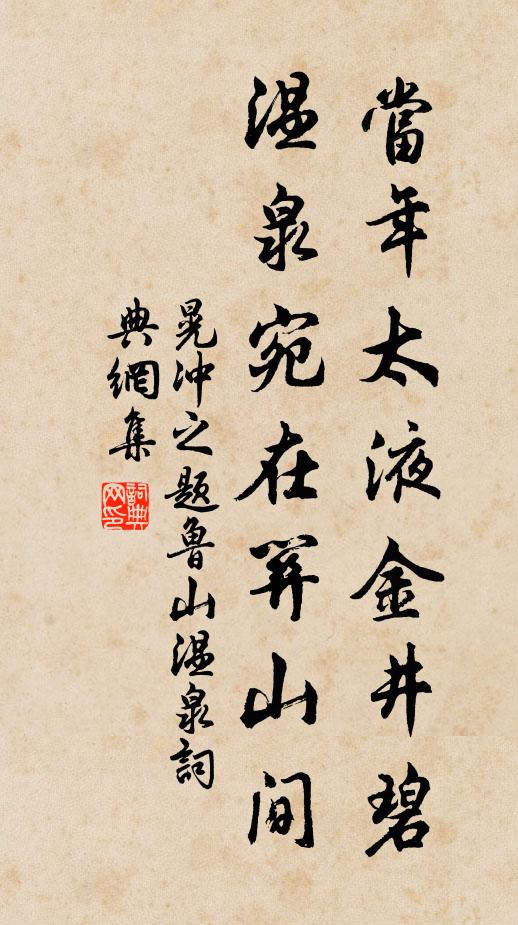 當年太液金井碧
温泉宛在山間
晁冲之题魯山温泉詞
典網集
詞典
网印